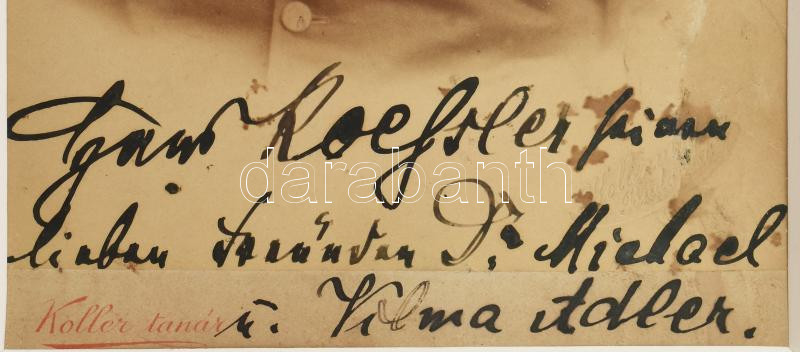 Hans Koessler seinen
darabanth
lieben Freunden Dr. Michael
Koller tanár
u. Vilma Adler.